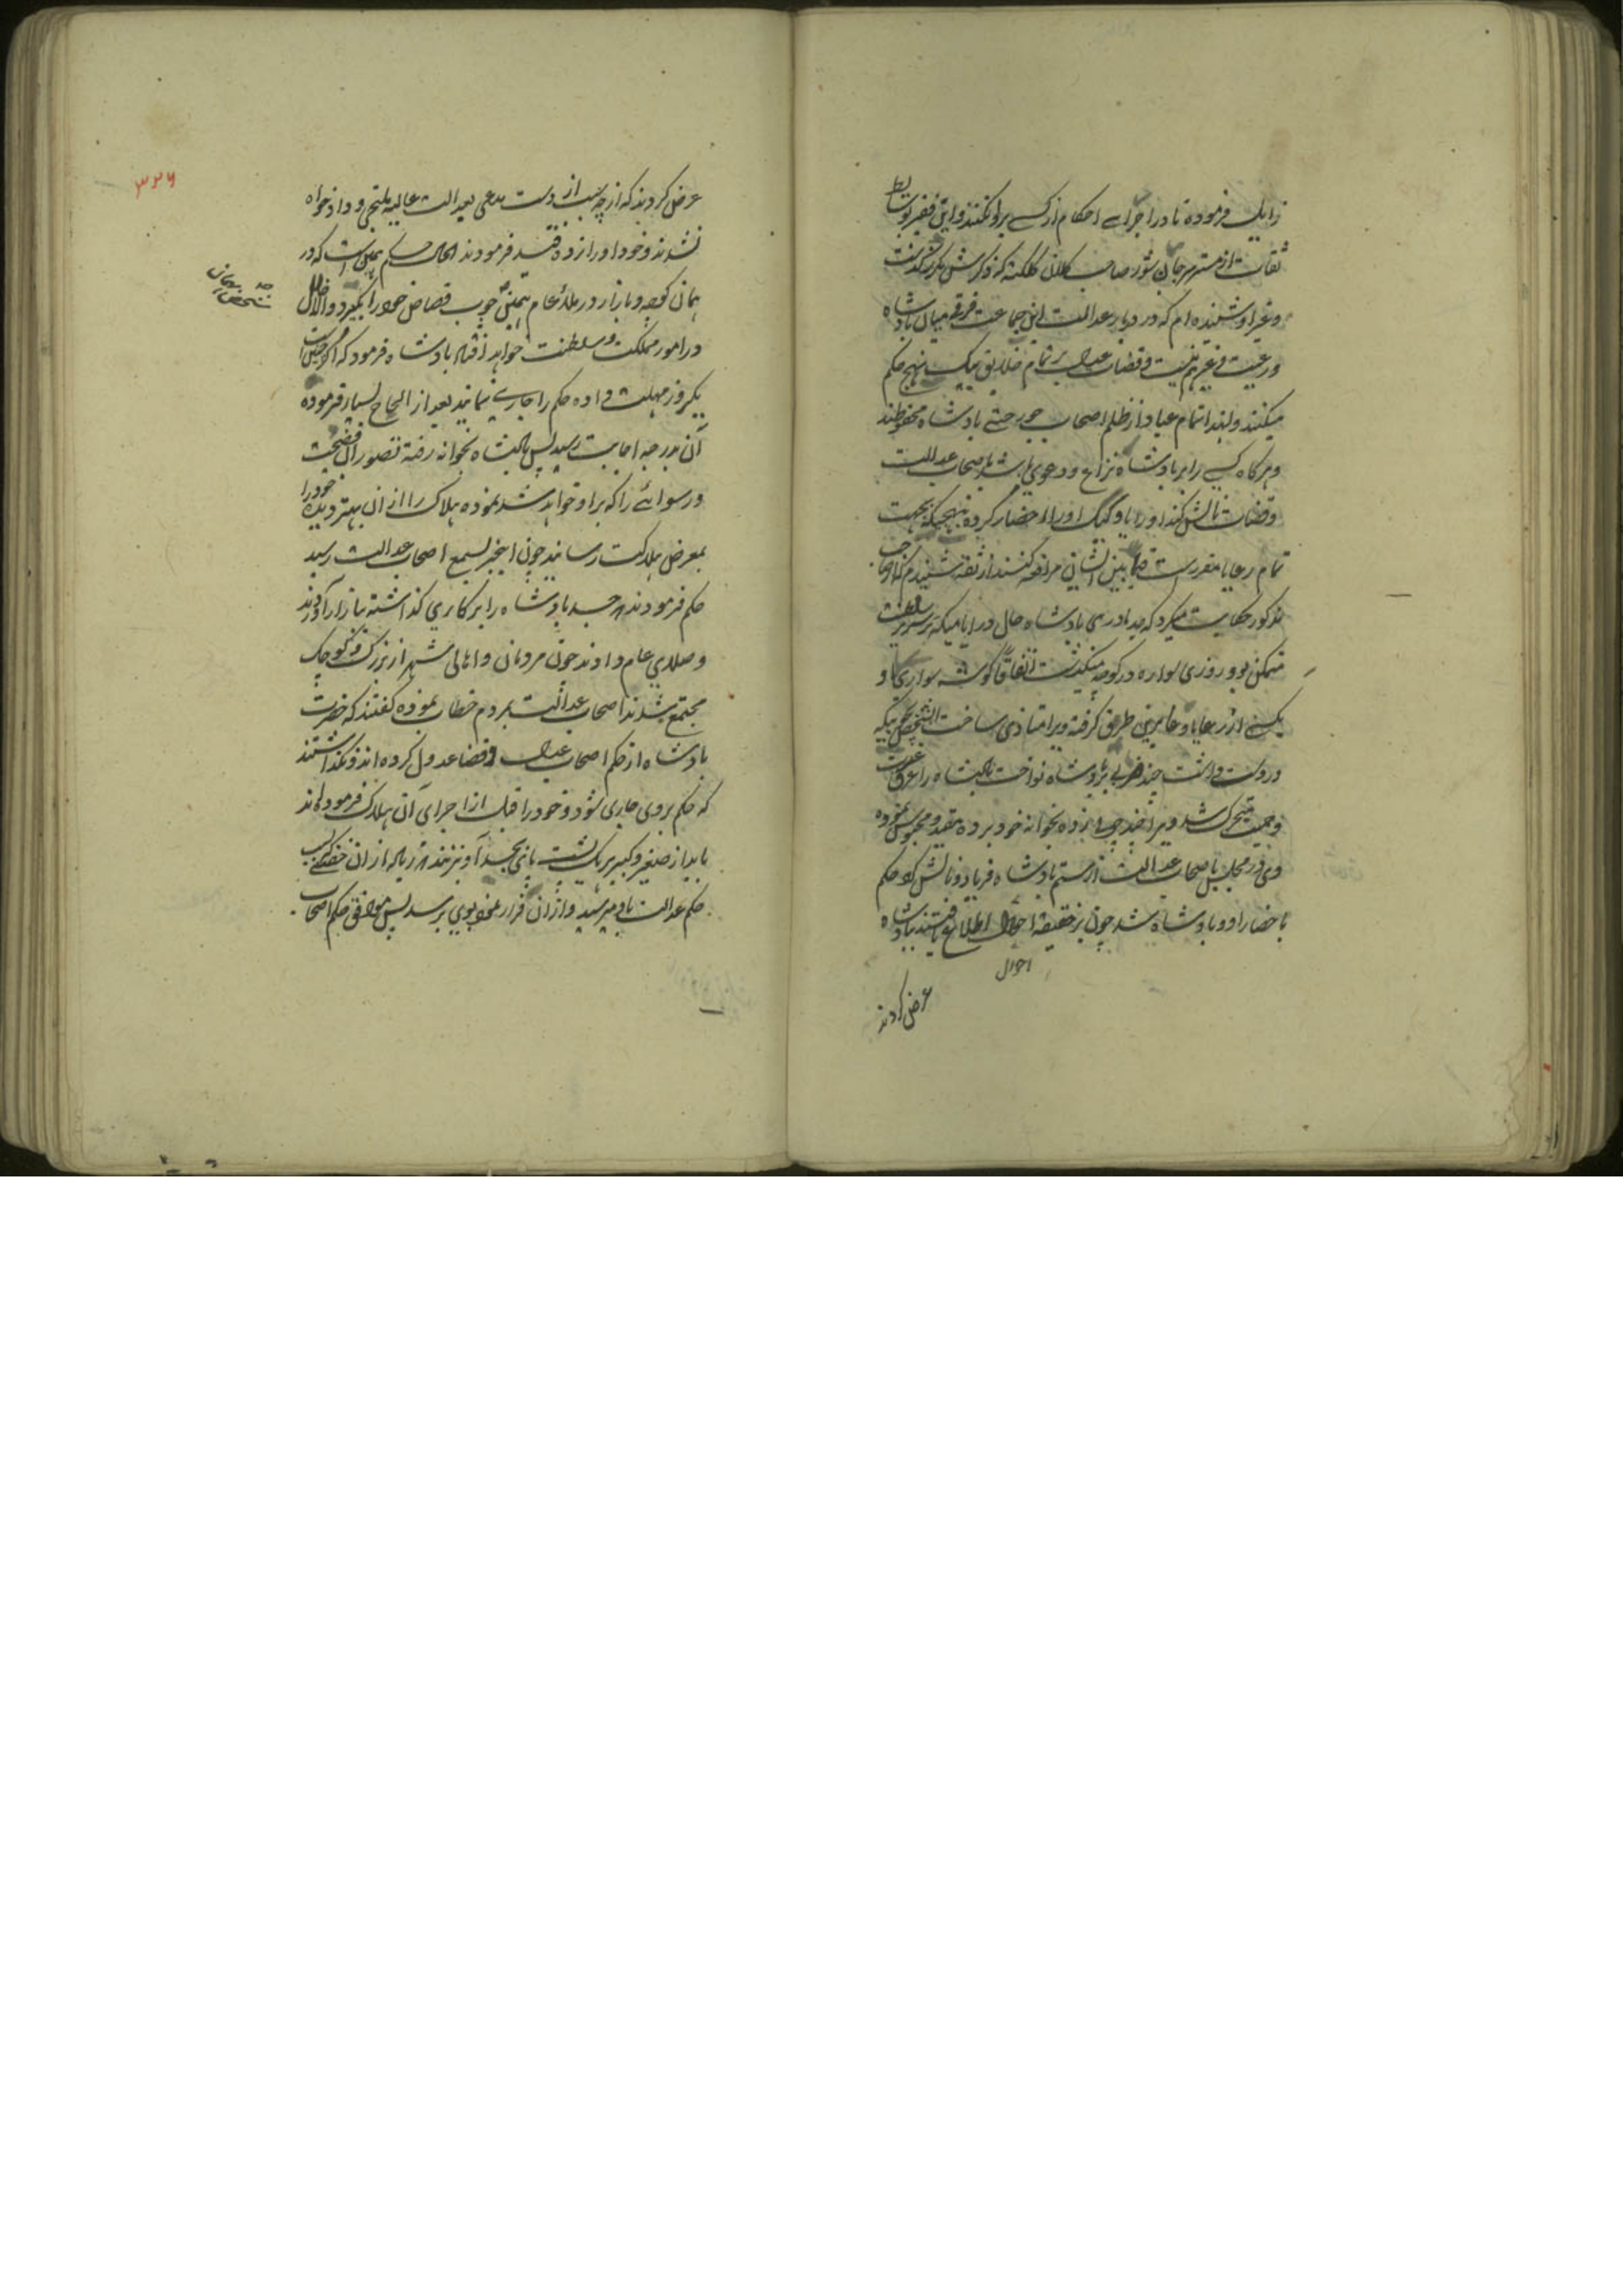 زایل فرموده تا در اجرای احکام از کسے پروا نکنند و این فقیر بوساطت
ثقات از مستر سرجان شور صاحب کلان کلکته که ذکرش مکرر گذشت
و غیر او شنیده ام که در دربار عدالت این جماعت فرقی میان پادشاه
و رعیت و غیرهم نیست و قضات عدالت بر تمام خلایق بیک نهج حکم
میکنند و لهذا تمام عباد از ظلم اصحاب جور حتے پادشاه محفوظند
و هرگاه کسے را بر پادشاه نزاع و دعوی باشد باصحاب عدالت
و قضات نالش کند او را یا وکیل او را احضار کرده بنهجیکه بجهت
تمام رعایا مقررست فیمابین ایشان مرافعه کنند از ثقه شنیدم که از صاحب
مذکور حکایت میکرد که پدر مادری پادشاه حال در ایامیکه بر سریر سلطنت
متمکن بود روزی سواره در کوچه میگذشت اتفاقا گوشه سواری او
یکے از رعایا و عابرین طریق گرفته ویرا متاذی ساخت آن شخص بچوبیکه
در دست داشت چند ضربی بر پادشاه نواخت پادشاه را عرق غیرت
و حمیت متحرک شد ویرا چند چوب زده بخوانه خود برده مقید و محبوس نموده
وی در مجلس باصحاب عدالت از ستم پادشاه فریاد و نالش کرد حکم
باحضار او و پادشاه شد چون بر حقیقه احوال اطلاع یافتند بپادشاه
احوال
عرض کردند
۳۲۶
عرض کردند که از چه سبب از دست مدعی بعدالت عالیه ملتجی و داد خواه
نشدند و خود او را زده قید فرمودند الحال حکم همین است که در
همان کوچه و بازار در ملاء عام بهمین چوب قصاص خود را بگیرد و الا اخلال
در امور مملکت و سلطنت خواهد افتاد پادشاه فرمود که اگر چنین است
یکروز مهلت داده حکم را جاری نمایند بعد از الحاح بسیار فرموده
آن بدرجه اجابت رسید پس پادشاه بخوانه رفته تصور آن فضیحت
و رسوائے را که بر او خواهد شد نموده هلاک را از ان بهتر دیده خود را
بمعرض هلاکت رسانید چون اینخبر بسمع اصحاب عدالت رسید
حکم فرمودند که جسد پادشاه را بر کاری گذاشته ببازار آوردند
و صلای عام دادند چون مردمان و اهالی شهر از بزرگ و کوچک
مجتمع شدند اصحاب عدالت بمردم خطاب نموده گفتند که حضرت
پادشاه از حکم اصحاب عدالت و قضا عدول کرده اند و نگذاشتند
که حکم بر وی جاری شود و خود را قبل از اجرای آن هلاک فرموده اند
باید از صغیر و کبیر بر یک
حکم عدالت باو میرسید و از آن قرار بوی برسد پس موافق حکم اصحاب